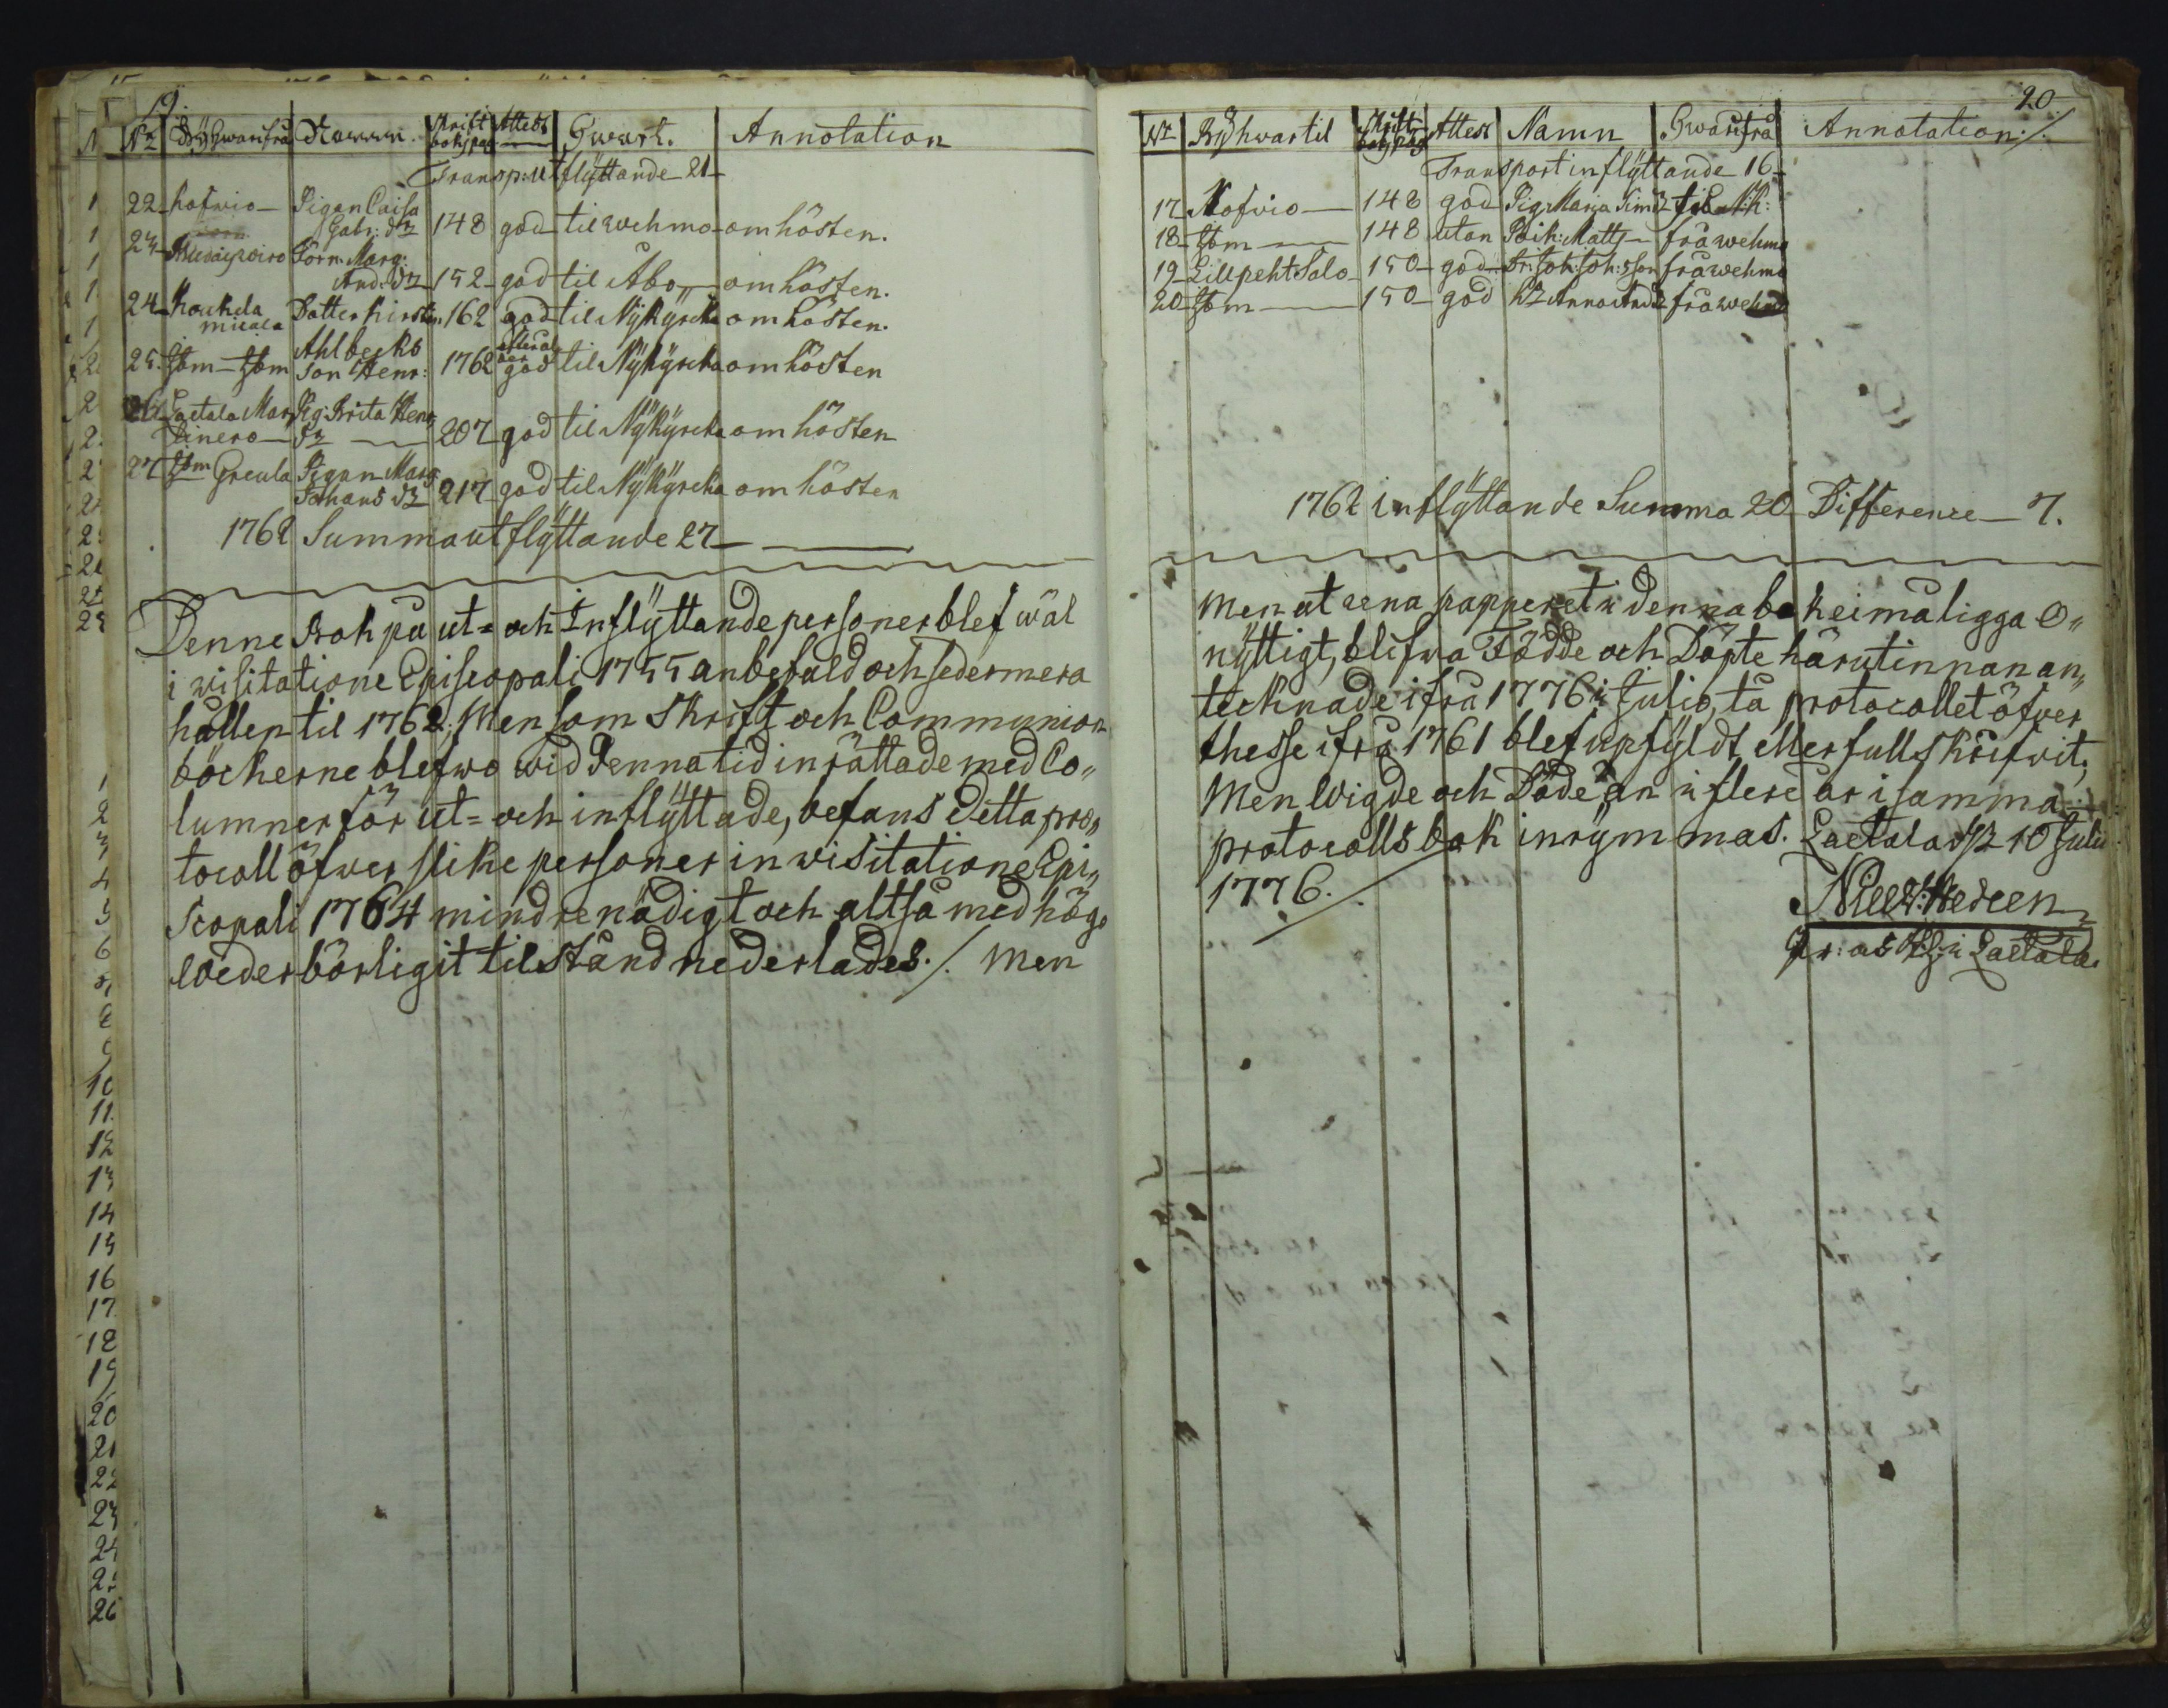 19.
N:r By hwarifrå Namn. Skrift bok pag Attest Hwart. Annotation
Transp: utflyttande 21
22 hofwio Pigan Caisa
Gabr: dr 148 god til wehmo om hösten.
23 Torn: Marg:
And: dr 152 god til Åbo om hösten.
24 Koukela Dotter Kirstin 162 god til Nykyrcka om hösten.
Ahlbecks
25. Ibm Ibm Son Henr: 1762 god til Nykyrcka om hösten
26 Laetala Mar Pig: Brita Henr
tinero dr 207 god til Nykyrcka om hösten
27 Ibm Greula Pigan Marg
Johans dr 217 god til Nykyrcka om hösten
1762 Summa utflyttande 27
Denne Bok på ut= och Inflyttande personer blef wäl
i visitatione Episcopali 1755 anbefald och sedermera
hållen til 1762; Men som Skrift och Communion
böckerne blefwo wid denna tid inrättade med Co„
lumner för ut= och inflyttade, befans detta pro„
tocoll öfwer slike personer in visitatione Epi„
scopali 1764 mindre nödigt och altså med hög„
wederbörligit tilstånd nederlades./. Men
20.
N:r By hwartil Skrift bok pag Attest Namn Hwarifrå Annotation./.
Transport inflyttande 16
17 Kofvio 148 god Pig: Maria Sim dr
18 Ibm 148 utan Poik: Matts frå wehmo
19 Lillpeht Salo 150 god Dr: Joh: Joh: sson frå wehmo
20 Ibm 150 god Anna And: dr frå wehmo
1762 inflyttande Summa 20 Difference 7.
Men at rena papperet i denna bok ei må ligga o„
nyttigt, blifwa Födde och Döpte härutinnan an„
tecknade ifrå 1776 i Julio, tå protocollet öfwer
thesse ifrå 1761 blef upfyldt eller fullskrifwit;
Men Wigde och Döde än i flere år i samma
protocolls bok inrymmas. Laetala d. 10 Julii
1776.
Hedeen
i Laetala.